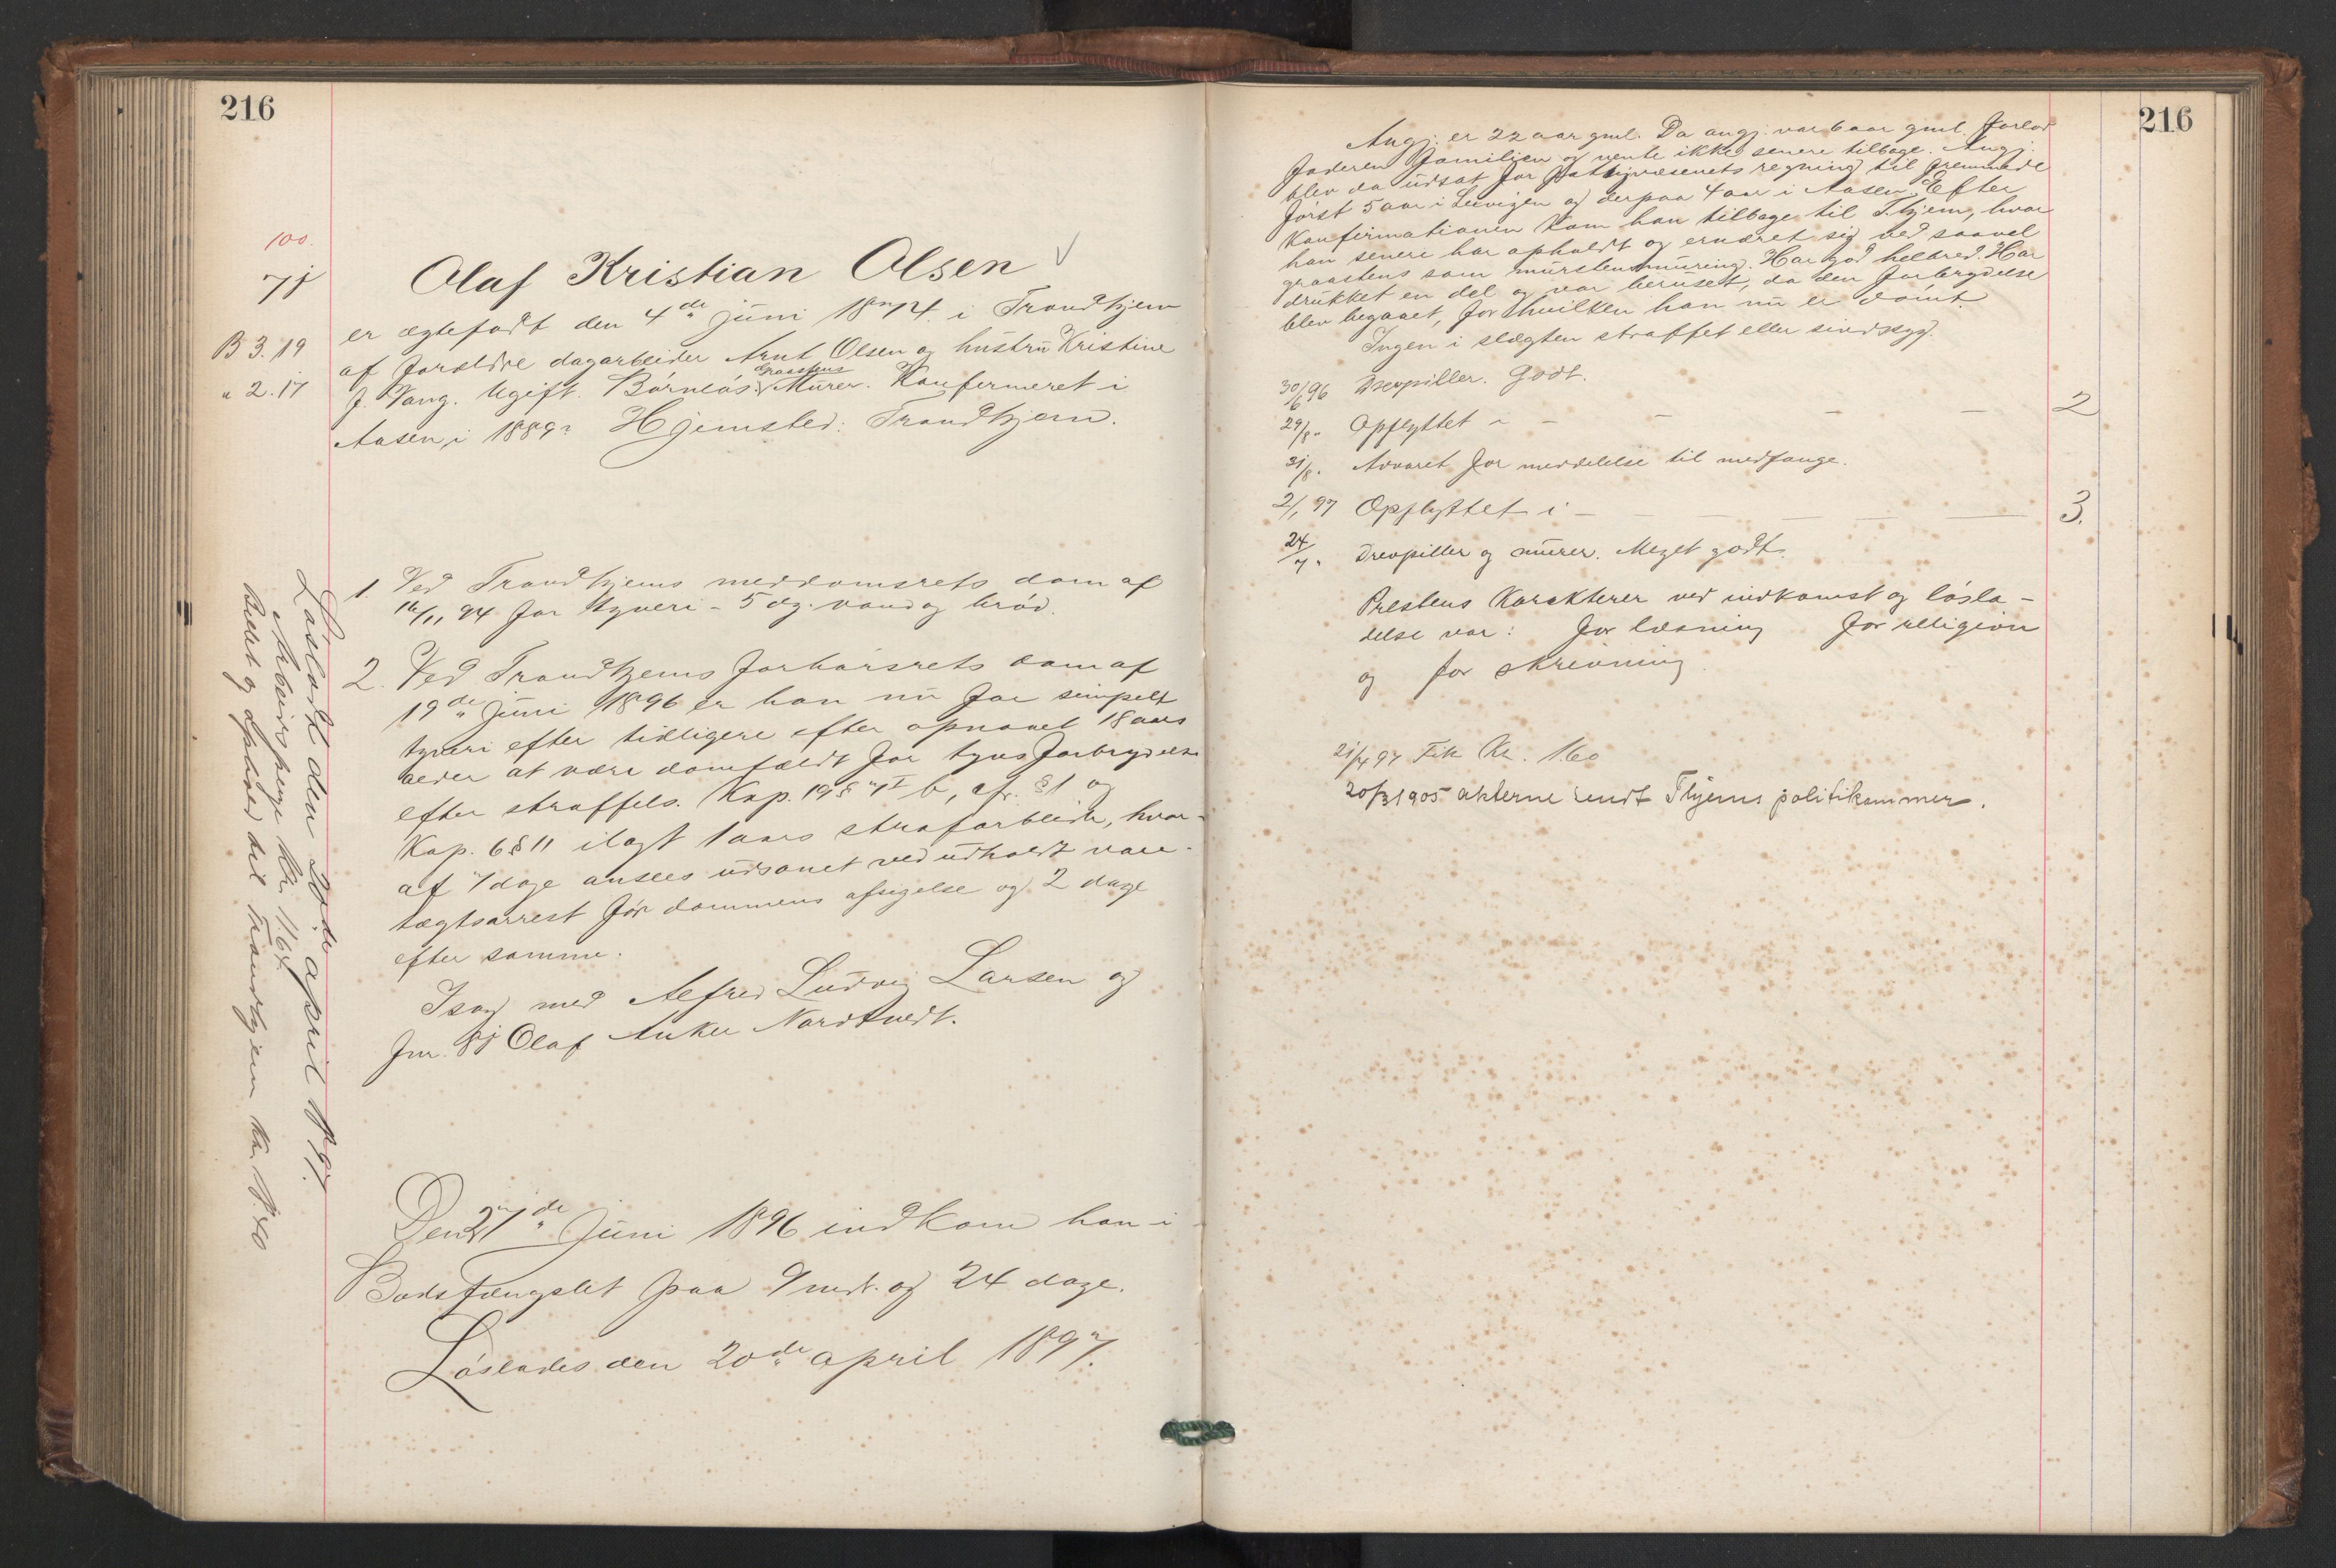 216
100.
7j
B 3.19
" 2.17
Olaf Kristian Olsen
er ægtefødt den 4de juni 1874 i Trondhjem
af forældre dagarbeider Arnt Olsen og hustru Kristine
J. Vang. Ugift. Barnløs. Graastens Murer. Konfirmeret i
Aasen i 1889. Hjemsted: Trondhjem.
1. Ved Trondhjems meddomsrets dom af
16/11 94 for tyveri - 5 dg. vand og brød.
2. Ved Trondhjems forhørsrets dom af
19de juni 1896 er han nu for simpelt
tyveri efter tidligere efter opnaaet 18 aars
alder at være domfældt for tyvsforbrydelse
efter straffels. Kap. 19 § 1 b, cfr. § 1 og
Kap. 6 § 11 ilagt 1 aars strafarbeide, hvor-
af 7 dage ansees udsonet ved udholdt vare-
tægtsarrest før dommens afsigelse og 2 dage
efter samme.
I sag med Alfred Ludvig Larsen og
fnr. 8j Olaf Anker Nordtvedt.
Den 27de Juni 1896 indkom han i
Bodsfængslet paa 9 mdr. og 24 dage.
Løslades den 20de april 1897.
Løsladt den 20de april 1897.
Arbeidspenge Kr. 11.64
Billet og ophold til Trondhjem Kr.
216
Angj. er 22 aar gml. Da angj. var 6 aar gml. forlod
faderen familjen og vente ikke senere tilbage. Angj.
blev da udsat for fattigvæsenets regning til fremmede
først 5 aar i Leuvigen og derpaa 4 aar i Aasen. Efter
Konfirmationen kom han tilbage til T.hjem, hvor
han senere har opholdt og ernæret sig ved saavel
graastens som murstensmuring. Har god helbred. Har
drukket en del og var beruset, da den forbrydelse
blev begaaet, for hvilken han nu er dømt.
Ingen i slægten straffet eller sindssyg.
30/6 96 Drevpiller. Godt.
29/8 " Opflyttet i - - - - 2
31/8 " Advaret for meddelelse til medfange.
2/1 97 Opflyttet i - - - - 3.
24/ " Drevpiller og murer. Meget godt.
Prestens Karakterer ved indkomst og løsla-
delse var: for læsning for religion
og for skrivning.
21/4 97 Fik Kr. 1.60
20/3 1905 akterne sendt T.hjems politikammer.